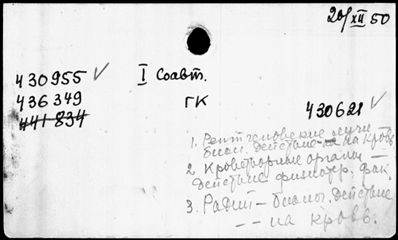 20/XII 50
430955 I Соавт.
436349 ГК
441834 430621
1. Рентгеновские лучи
биол. действие на кровь
2 Кроветворные органы —
действие физиотер. фак.
3. Радий — биолог. действие
— — на кровь.